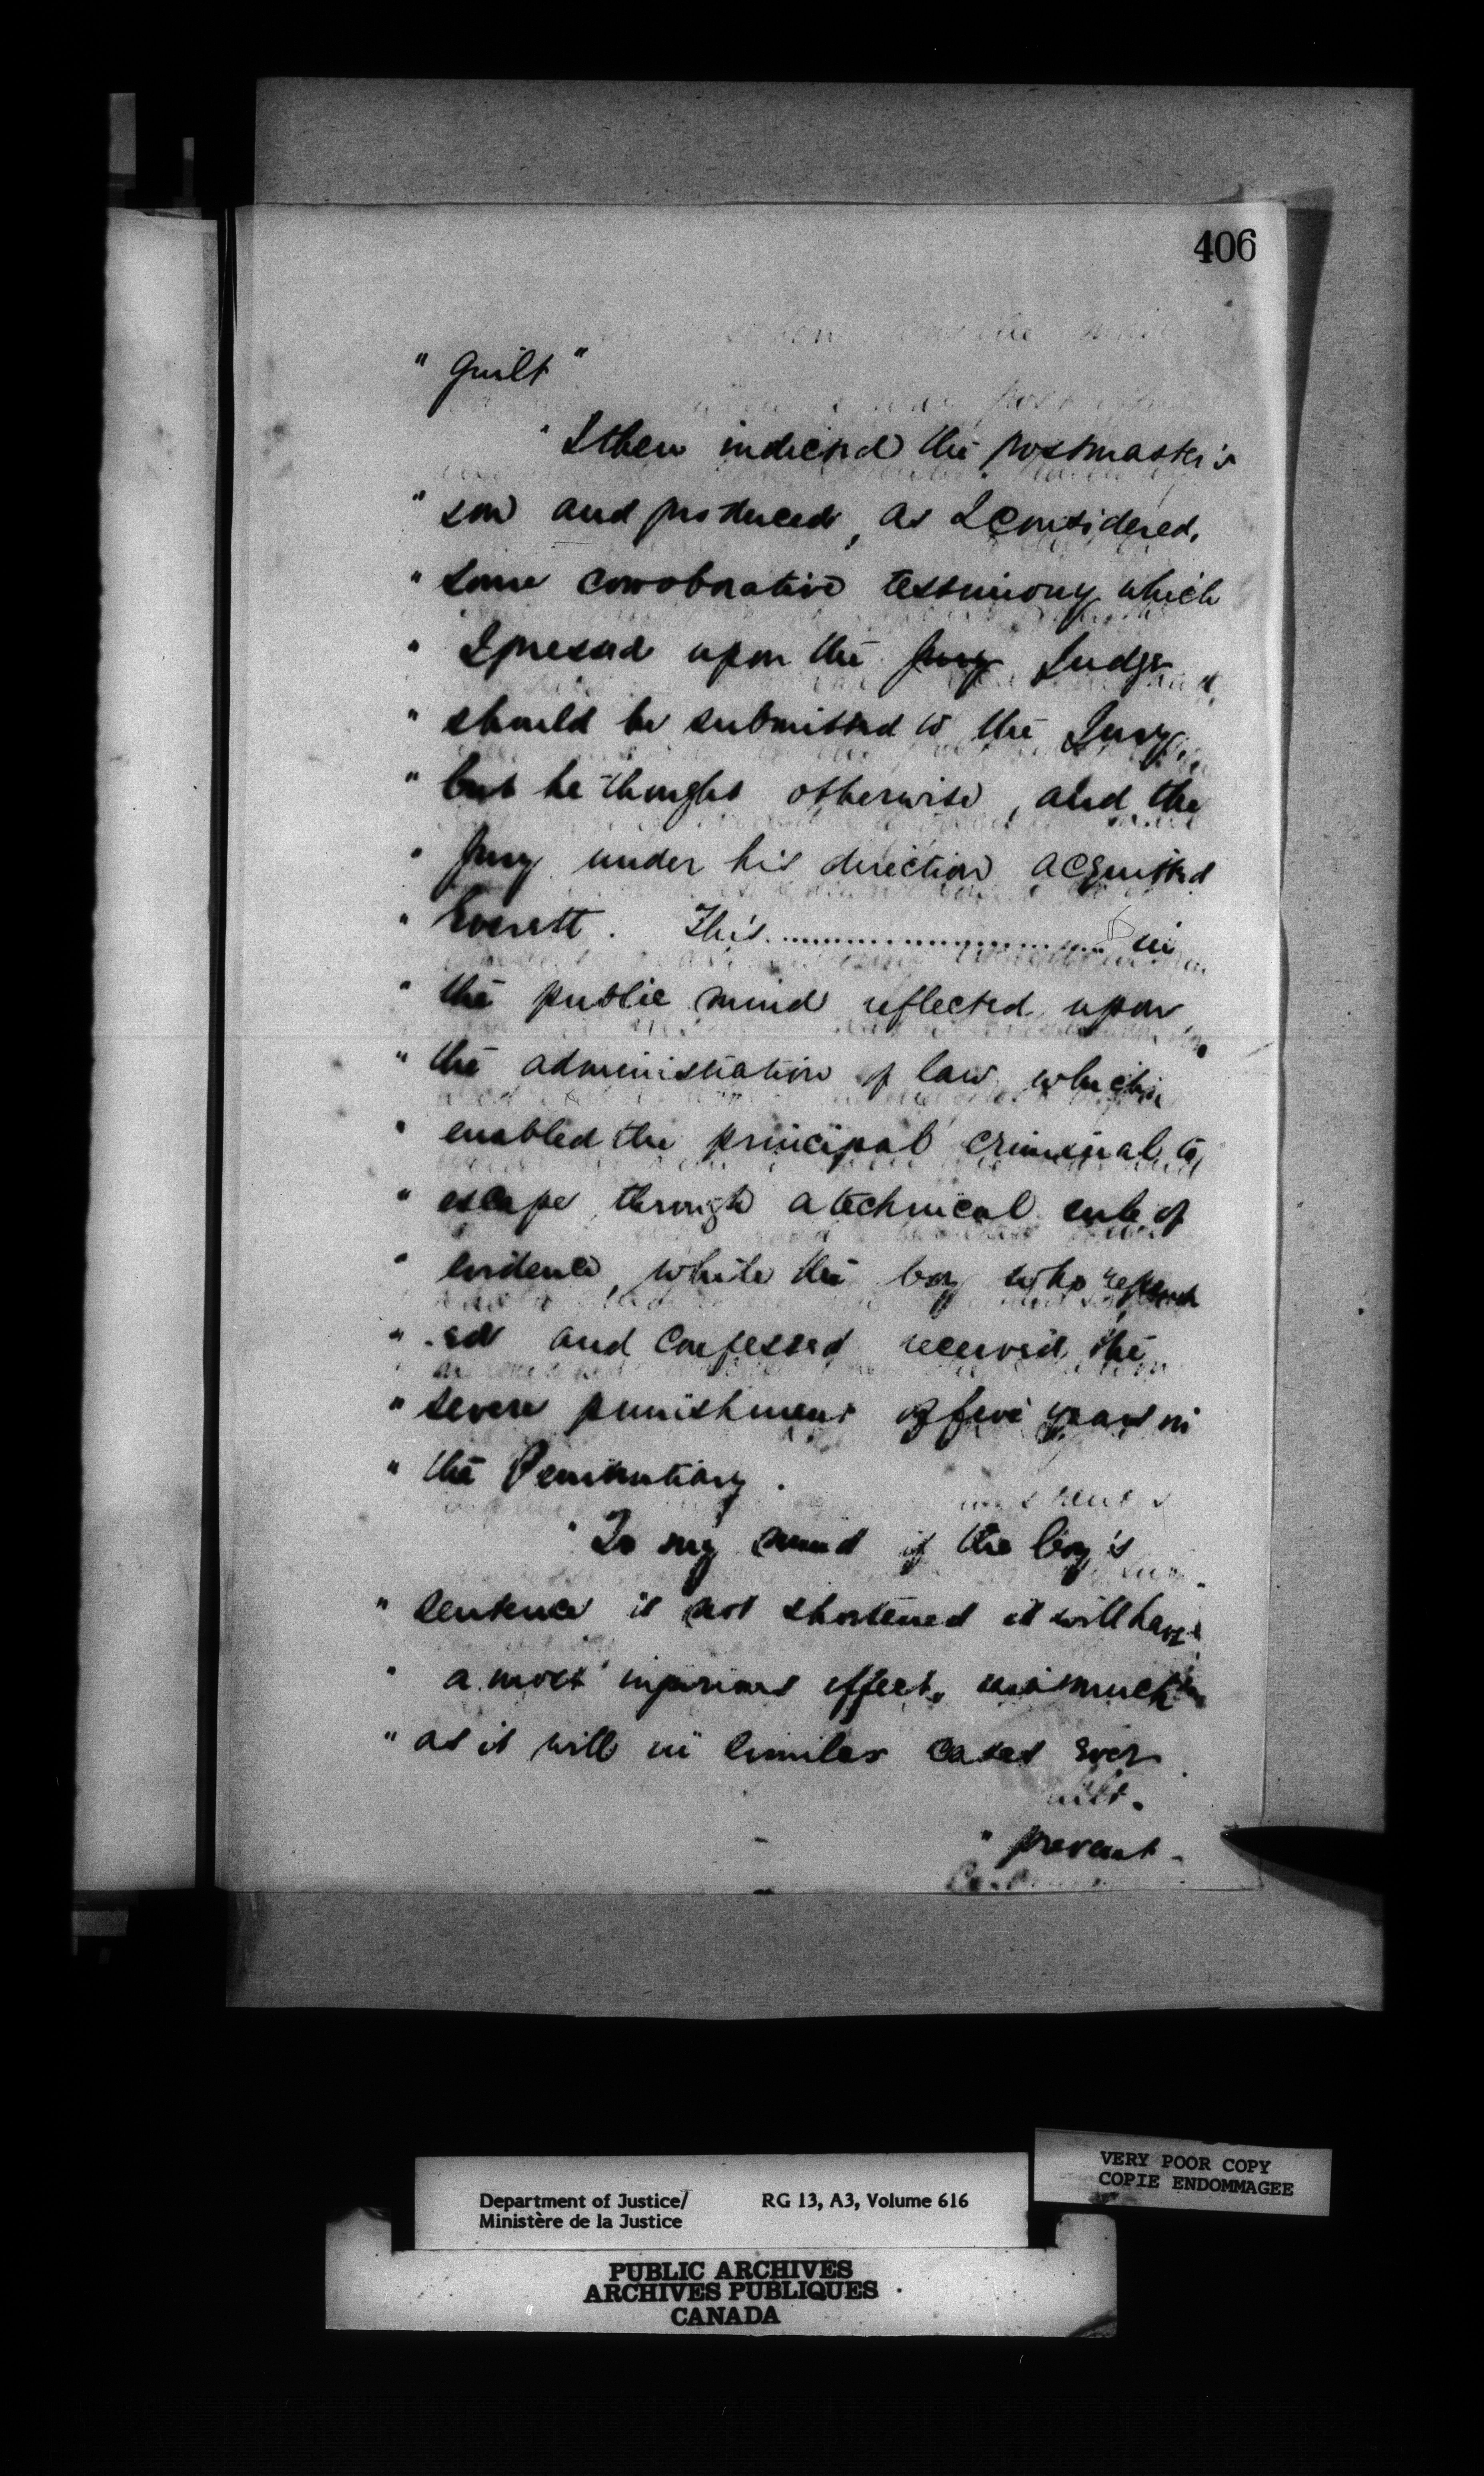 406
" guilt "
" I then indicted the postmaster's
" son and produced, as I considered,
" some corroborative testimony which
" I pressed upon the Jury Judge
" should be submitted to the Jury,
" but he thought otherwise, and the
" Jury under his direction acquitted
" Everett. This ........................... in
" the public mind reflected upon
" the administration of law which
" enabled the principal criminal to
" escape through a technical rule of
" evidence, while the boy who repent
" -ed and confessed received the
" severe punishment of five years in
" the Penitentiary.
" To my mind if the boy's
" sentence is not shortened it will have
" a most injurious effect, inasmuch
" as it will in similar cases ever
" prevent -
VERY POOR COPY
COPIE ENDOMMAGEE
Department of Justice/ RG 13, A3, Volume 616
Ministère de la Justice
PUBLIC ARCHIVES
ARCHIVES PUBLIQUES
CANADA